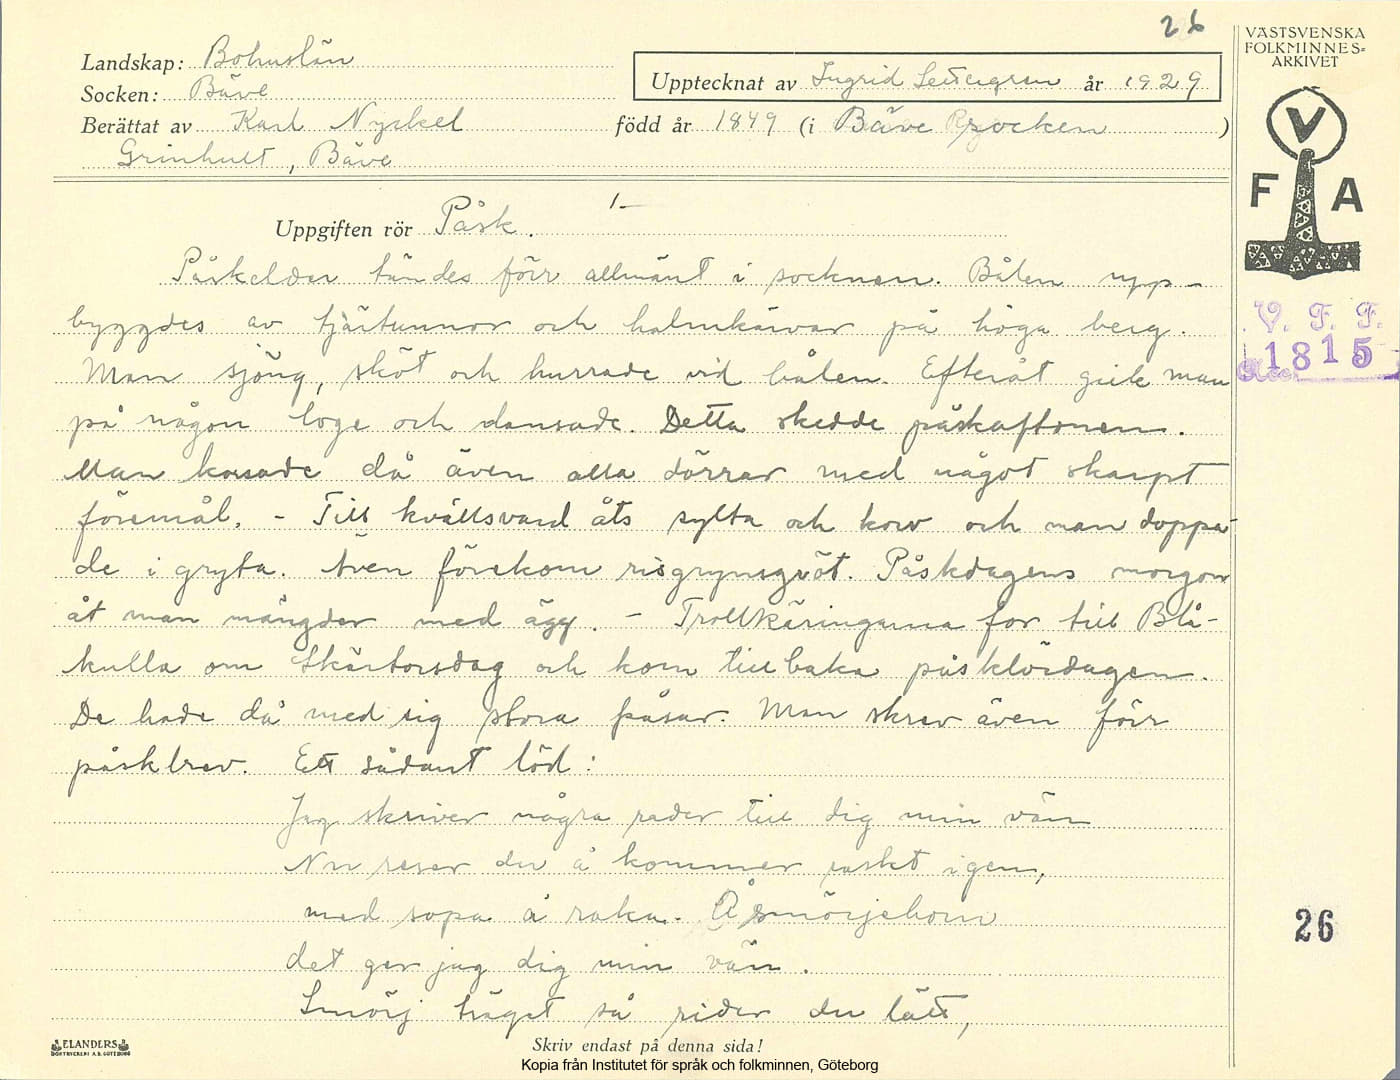 26
Landskap: Bohuslän
Socken: Bäve
Upptecknat av Ingrid år 1929
Berättat av Karl Nyckel född år 1849 (i Bäve socken )
Grinhult, Bäve
VÄSTSVENSKA
FOLKMINNES=
ARKIVET
V
F A
V. F. F.
Acc. 1815
1
Uppgiften rör Påsk.
Påskeldar tändes förr allmänt i socknen. Bålen upp-
byggdes av tjärtunnor och halmkärvar på höga berg.
Man sjöng, sköt och hurrade vid bålen. Efteråt gick man
på någon loge och dansade. Detta skedde påskaftonen.
Man korsade då även alla dörrar med något skarpt
föremål. - Till kvällsvard åts sylta och korv och man doppa-
de i gryta. Även förekom risgrynsgröt. Påskdagens morgon
åt man mängder med ägg. - Trollkäringarna for till Blå-
kulla om Skärtorsdag och kom tillbaka påsklördagen.
De hade då med sig stora påsar. Man skrev även förr
påskbrev. Ett sådant löd:
Jag skriver några rader till dig min vän
Nu reser du å kommer raskt igen,
med sopa å raka. Å smörjehorn
det ger jag dig min vän.
Smörj träget så rider du lätt,
26
ELANDERS
BOKTRYCKERI A.B. GÖTEBORG
Skriv endast på denna sida!
Kopia från Institutet för språk och folkminnen, Göteborg